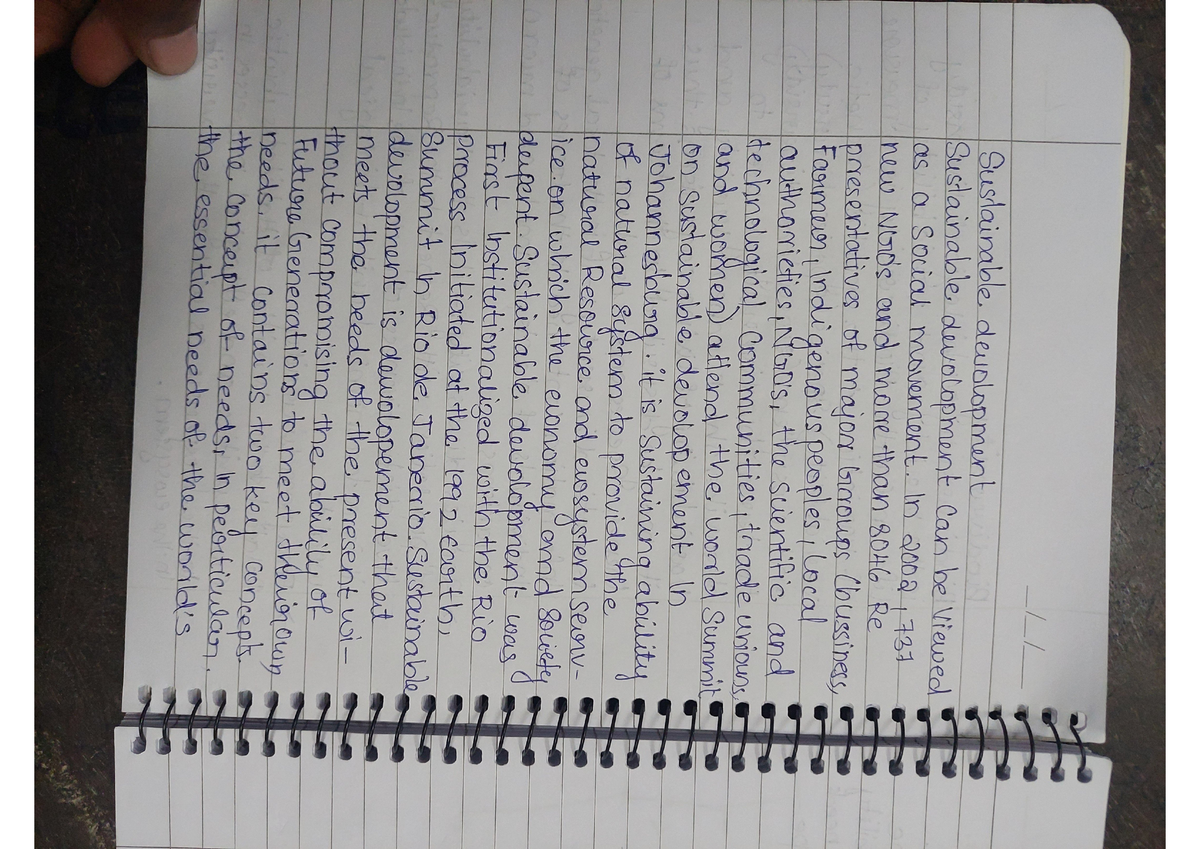 Sustainable devolopment
Sustainable devolopment can be viewed
as a Social movement. In 2002, 737
new NGO's and more than 8046 Re
presentatives of major Groups (bussiness,
Farmer, Indigenous peoples, local
authorieties, NGO's, the scientific and
technological Communities, trade unions,
and women) attend the world Summit
on Sustainable devolopement In
Johannesburg. it is Sustaining ability
of natural system to provide the
natural Resource and ecosystem serv-
ice on which the economy and Society
depent. Sustainable devolopment was
First Institutionalized with the Rio
Process Initiated at the 1992 earth,
Summit In Rio de Janerio. Sustainable
devolopment is devolopement that
meets the needs of the present wi-
thout Compromising the ability of
Future Generations to meet their own
needs. it contains two key concepts
the concept of needs, in perticular.
the essential needs of the world's